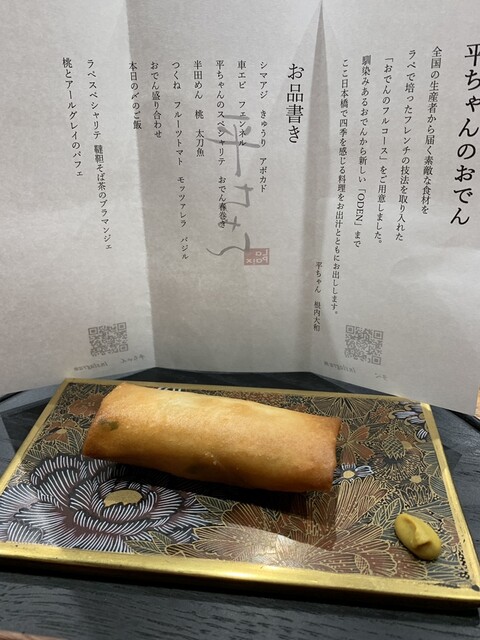 平ちゃんのおでん
全国の生産者から届く素敵な食材を
ラペで培ったフレンチの技法を取り入れた
「おでんのフルコース」をご用意しました。
馴染みあるおでんから新しい「ODEN」まで
ここ日本橋で四季を感じる料理をお出汁とともにお出しします。
平ちゃん 根内大和
お品書き
シマアジ きゅうり アボカド
車エビ フェンネル
平ちゃんのスペシャリテ おでん春巻き
半田めん 桃 太刀魚
つくね フルーツトマト モッツァレラ バジル
おでん盛り合わせ
本日の〆のご飯
ラペスペシャリテ 韃靼そば茶のブラマンジェ
桃とアールグレイのパフェ
平ちゃん